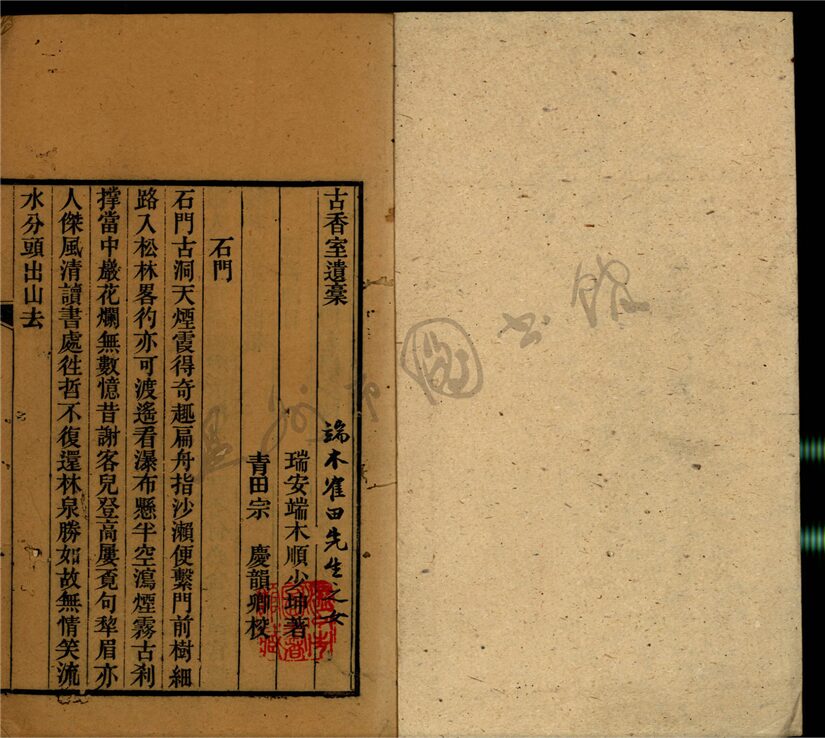 古香室遺稾
端木雀田先生之女
瑞安端木順少坤著
青田宗　慶韻卿校
石門
石門古洞天煙霞得奇趣扁舟指沙瀨便繫門前樹細
路入松林畧彴亦可渡遙看瀑布懸半空瀉煙霧古刹
撐當中巖花爛無數憶昔謝客兒登高屢覓句犂眉亦
人傑風清讀書處徃哲不復還林泉勝如故無情笑流
水分頭出山去
溫州市圖書館